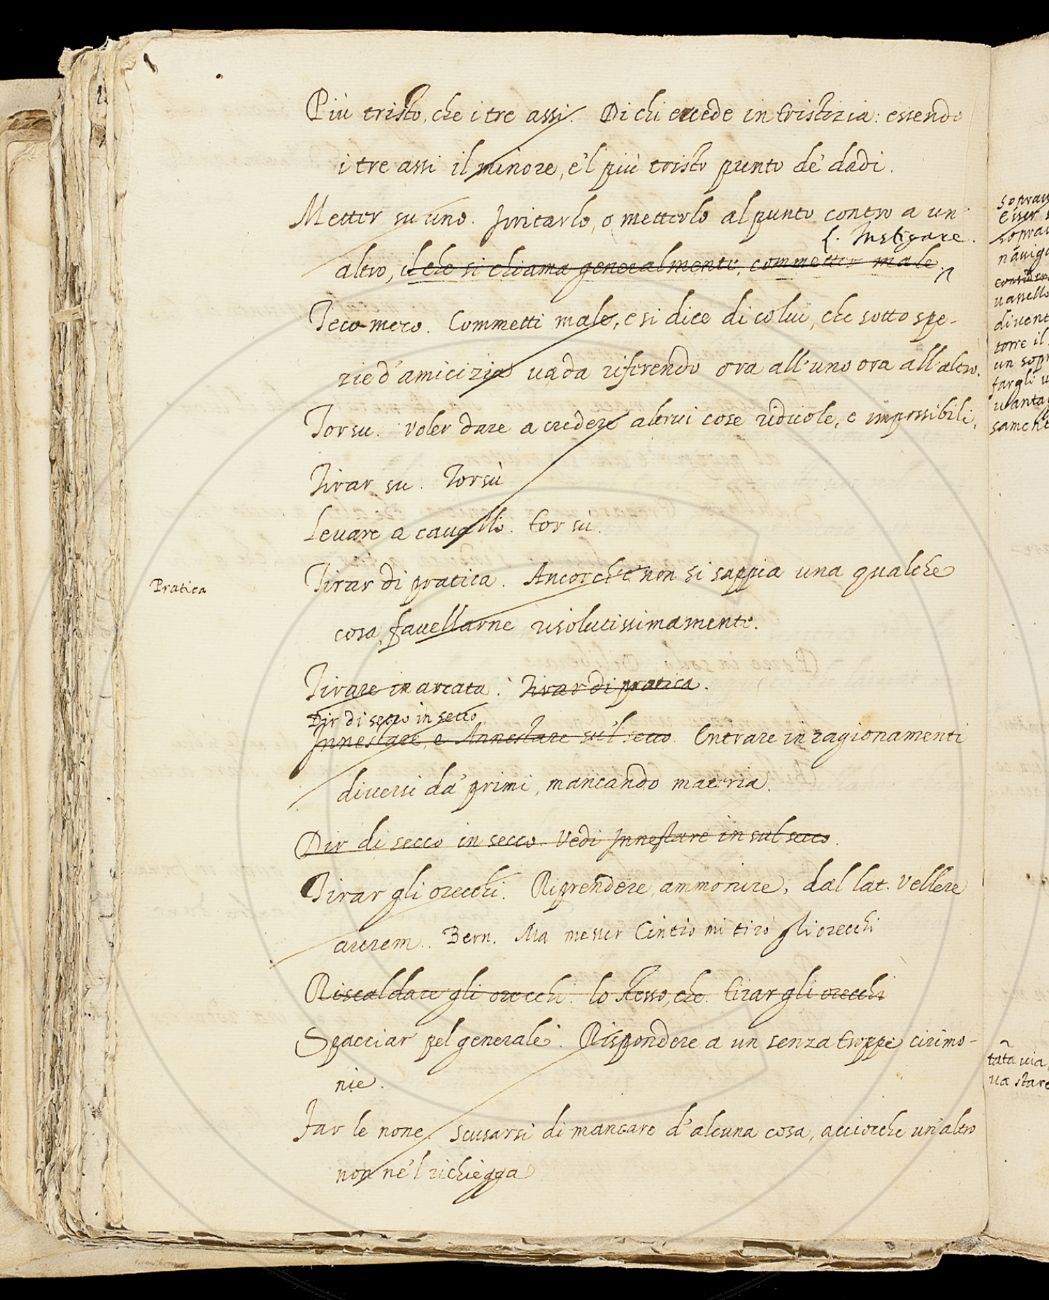 Più tristo, che i tre assi. Di chi eccede in tristizia: essendo
i tre assi il minore, e'l più tristo punto de' dadi.
Metter su uno. Irritarlo, o metterlo al punto contro a un
l. Instigare.
altro, il che si chiama generalmente, commetter male
Teco meco. Commetti male, e si dice di colui, che sotto spe-
zie d'amicizia vada riferendo ora all'uno ora all'altro.
Tor su. Voler dare a credere altrui cose ridicole, e impossibili.
Tirar su. Tor sù
Levare a cavallo. tor sù.
Pratica
Tirar di pratica. Ancorchè non si sappia una qualche
cosa, favellarne risolutissimamente.
Tirare in arcata. Tirar di pratica.
Dir di secco in secco
Innestare, e Annestare su'l secco. Entrare in ragionamenti
diversi da' primi, mancando materia.
Dir di secco in secco. Vedi Innestare in sul secco.
Tirar gli orecchi. Riprendere, ammonire, dal lat. Vellere
aurem. Bern. Ma messer Cintio mi tirò gli orecchi
Riscaldare gli orecchi. lo stesso, che tirar gli orecchi
Spacciar pel generale. Rispondere a un senza troppe cirimo-
nie.
Far le none. Scusarsi di mancare d'alcuna cosa, acciocche un'altro
non ne'l richiegga